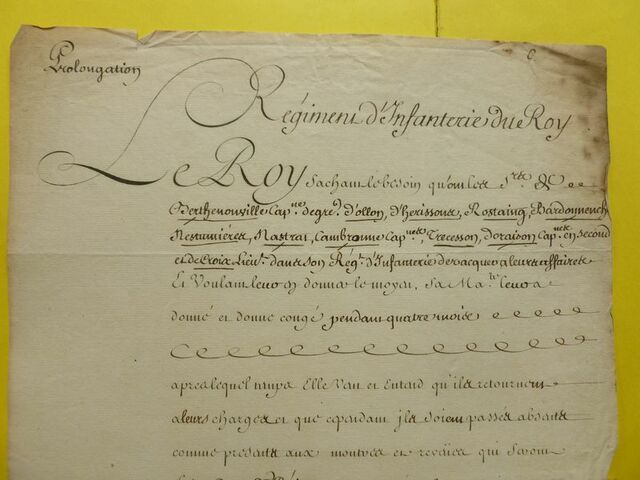 Prolongation
Régiment d'Infanterie du Roy
Le Roy sachant le besoin qu'ont les Srs. de
Berthenonville Capne. de gre. d'ollon, d'herissons, Rostaing, Bardonnench
Nestumiéres, Mastrai, Cambronne Capnes, Trecesson, d'oraison Capnes. en second
et de Croix Lieut. dans son Régt. d'Infanterie de vacquer a leurs affaires
Et Voulant leur en donner le moyen, Sa Maté. leur a
donné et donne congé pendant quatre mois
apres lequel temps Elle Veut et Entend qu'ils retournent
a leurs charges et que cependant ils soient passés absents
comme presents aux montres et revües qui seront